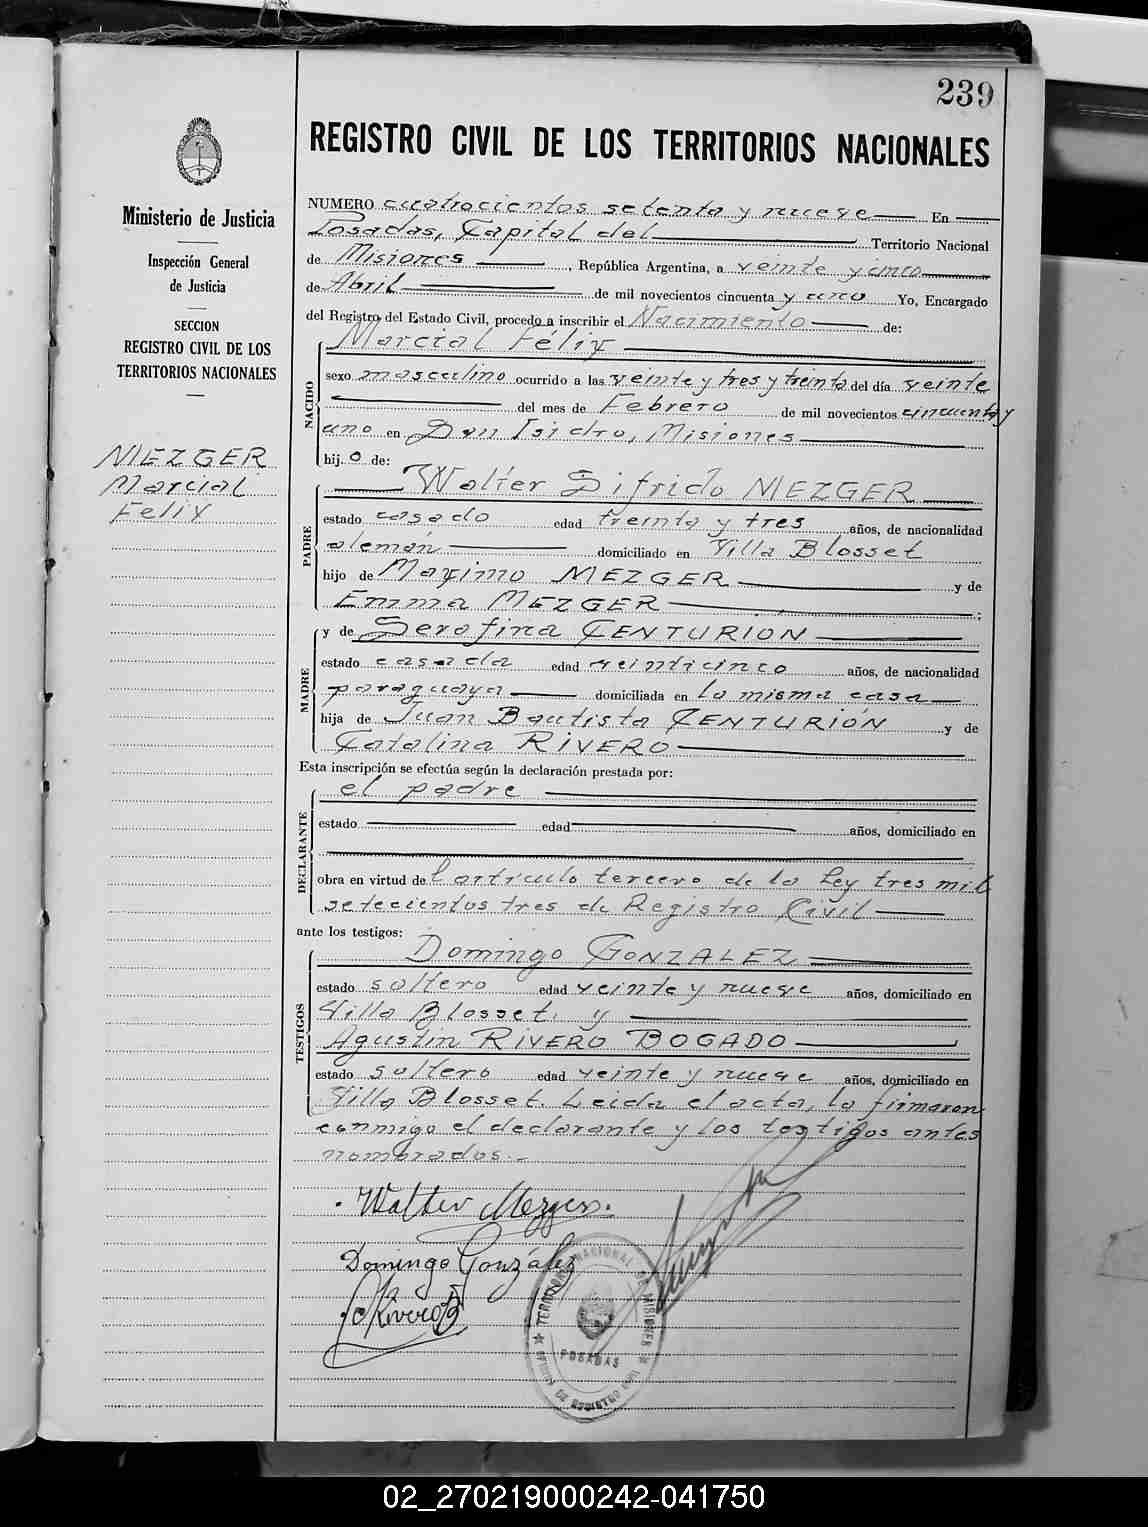 239
REGISTRO CIVIL DE LOS TERRITORIOS NACIONALES
Ministerio de Justicia
Inspección General
de Justicia
SECCION
REGISTRO CIVIL DE LOS
TERRITORIOS NACIONALES
MEZGER
Marcial
Felix
NUMERO cuatrocientos setenta y nueve En
Posadas, Capital del Territorio Nacional
de Misiones, República Argentina, a veinte y cinco
de Abril de mil novecientos cincuenta y uno Yo, Encargado
del Registro del Estado Civil, procedo a inscribir el Nacimiento de:
NACIDO
Marcial Félix
sexo masculino ocurrido a las veinte y tres y treinta del día veinte
del mes de Febrero de mil novecientos cincuenta y
uno en Don Isidro, Misiones
hij o de:
PADRE
Walter Sifrido MEZGER
estado casado edad treinta y tres años, de nacionalidad
alemán domiciliado en Villa Blosset
hijo de Maximo MEZGER y de
Emma MEZGER ;
MADRE
y de Serafina CENTURION
estado casada edad veinticinco años, de nacionalidad
paraguaya domiciliada en la misma casa
hija de Juan Bautista CENTURIÓN y de
Catalina RIVERO
Esta inscripción se efectúa según la declaración prestada por:
DECLARANTE
el padre
estado edad años, domiciliado en
obra en virtud de l artículo tercero de la Ley tres mil
setecientos tres de Registro Civil
ante los testigos:
TESTIGOS
Domingo GONZALEZ
estado soltero edad veinte y nueve años, domiciliado en
Villa Blosset. y
Agustin RIVERO BOGADO
estado soltero edad veinte y nueve años, domiciliado en
Villa Blosset. Leida el acta, la firmaron
conmigo el declarante y los testigos antes
nombrados.-
Walter Mezger.
Domingo González
Rivero B
TERRITORIO NACIONAL DE MISIONES
POSADAS
OFICINA DE REGISTRO CIVIL
02_270219000242-041750